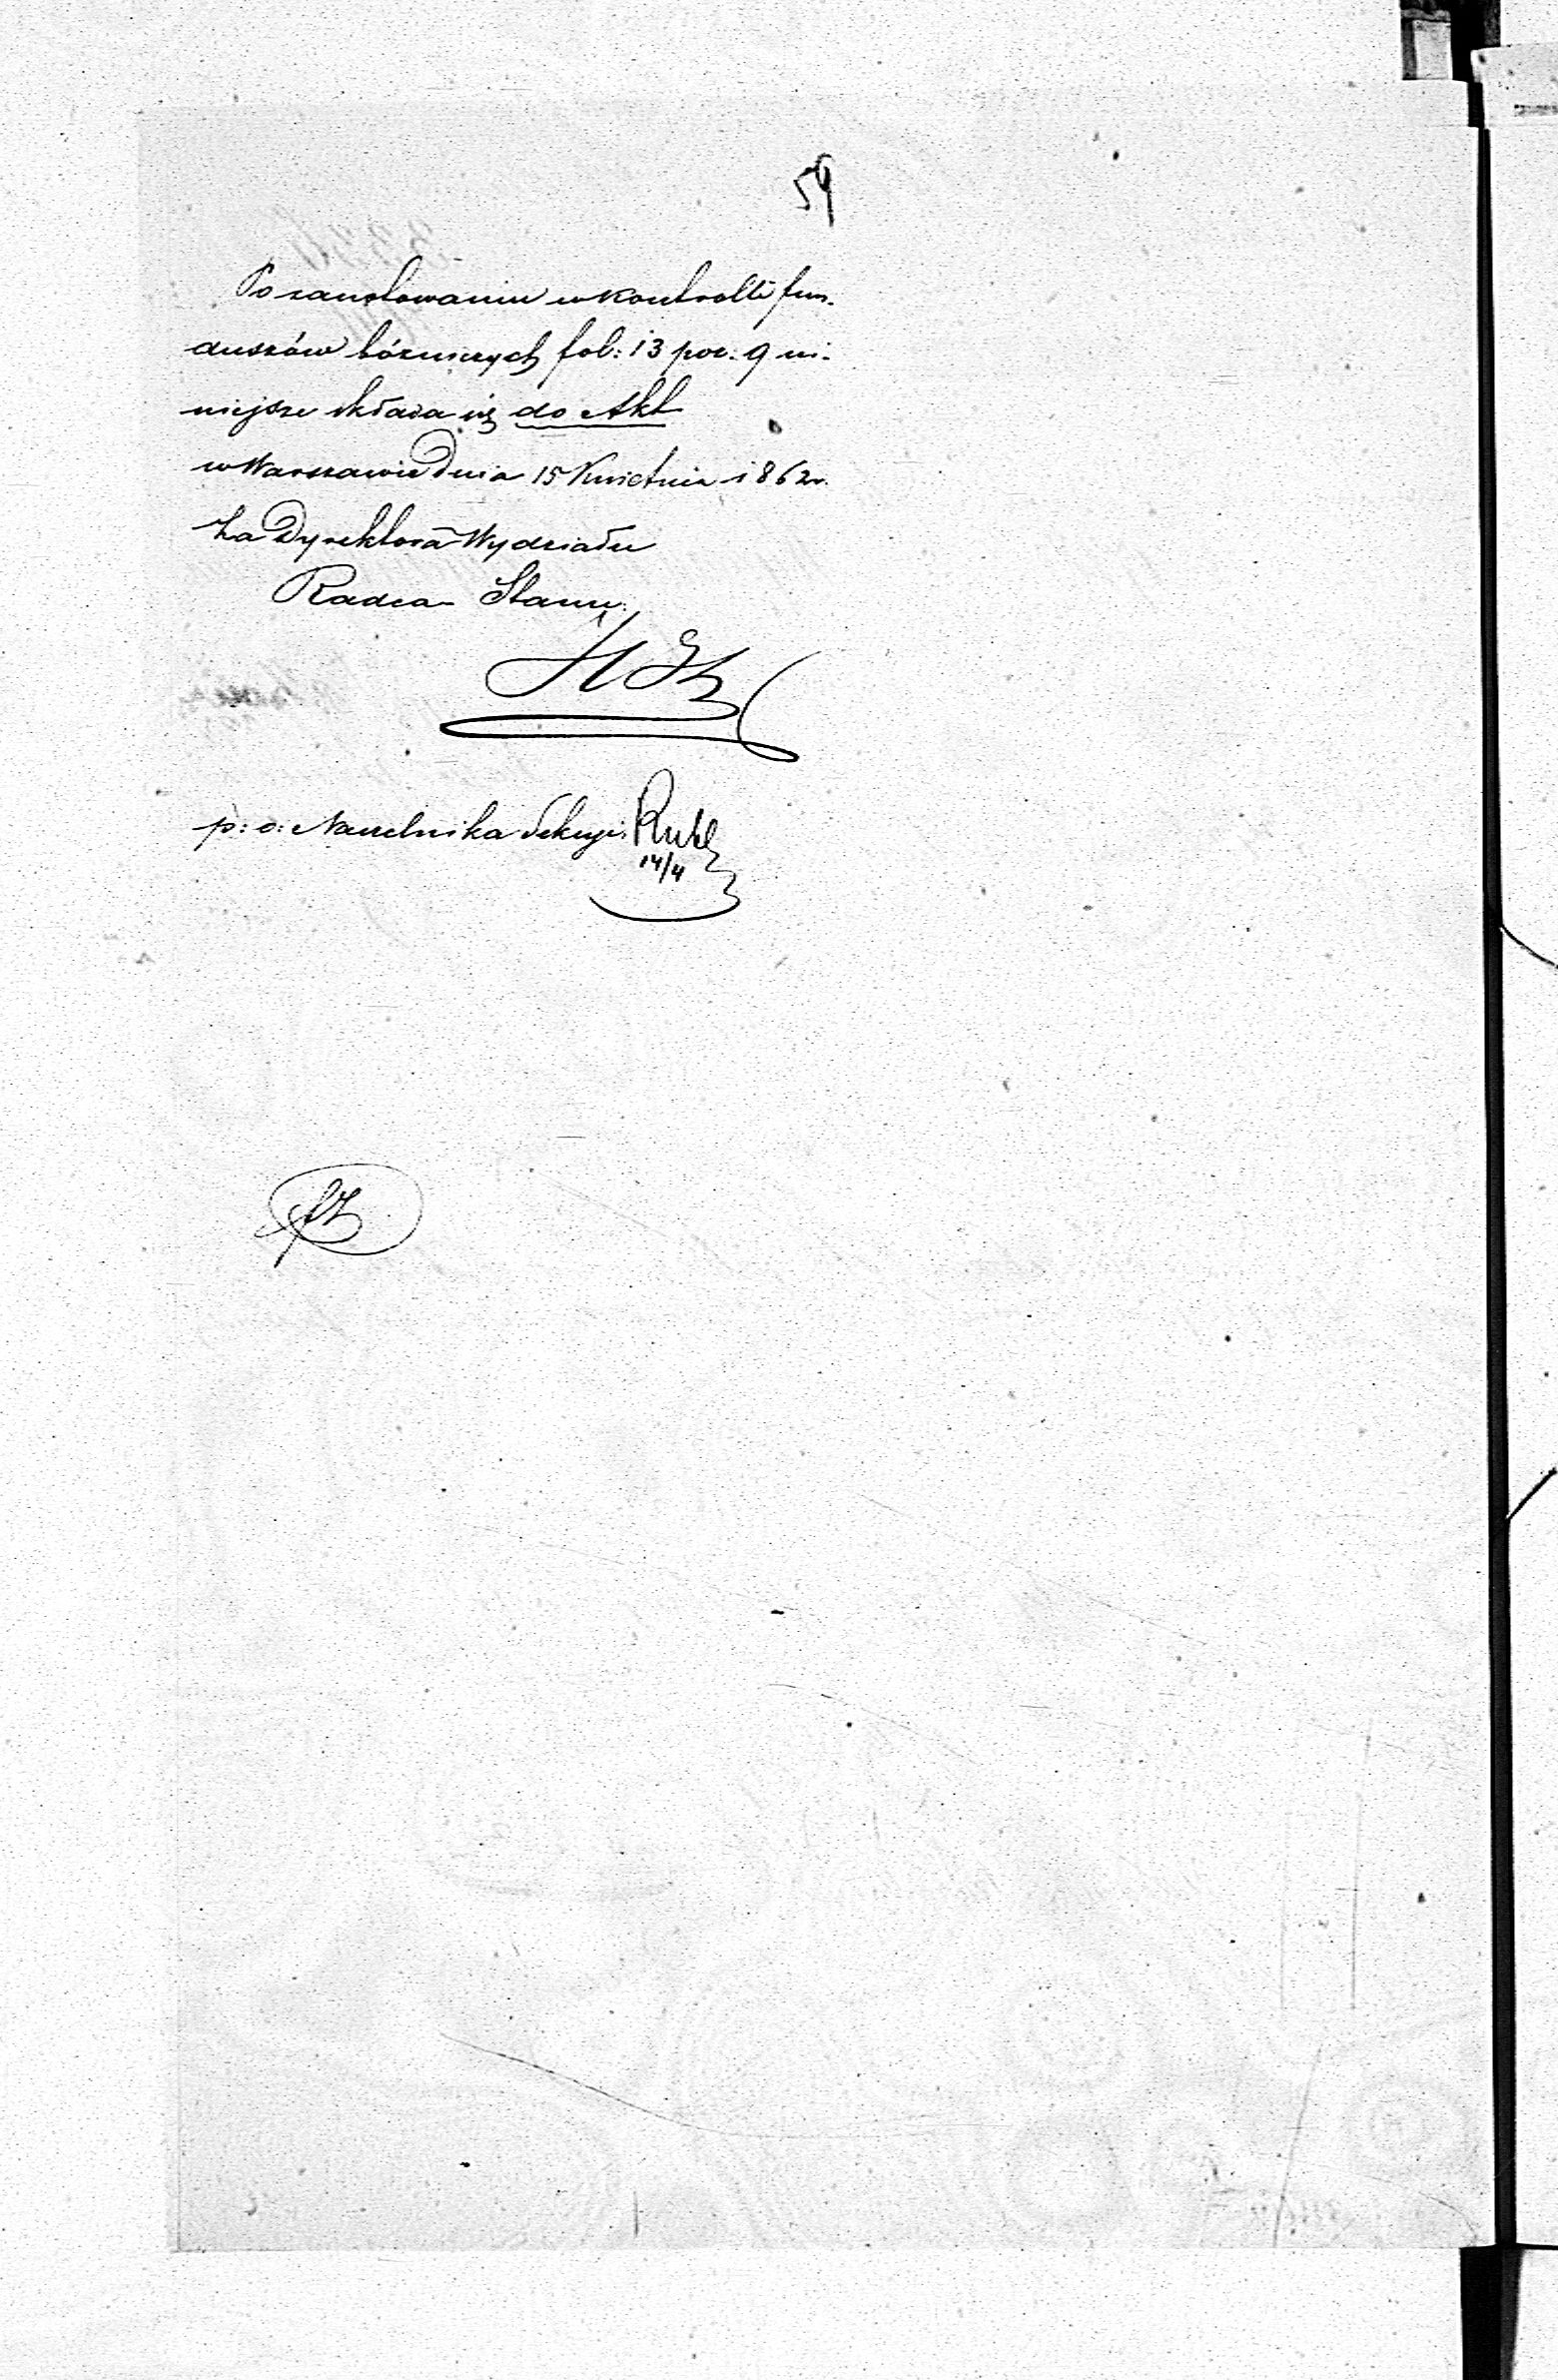 59
Po zanotowaniu w kontrolli fun-
duszów bóżniczych fol: 13 poz: 9 ni-
niejsze składa się do Akt
w Warszawie Dnia 15 Kwietnia 1862 r.
Za Dyrektora Wydziału
Radca Stanu.
p: o: Naczelnika Sekcyi.
14/4